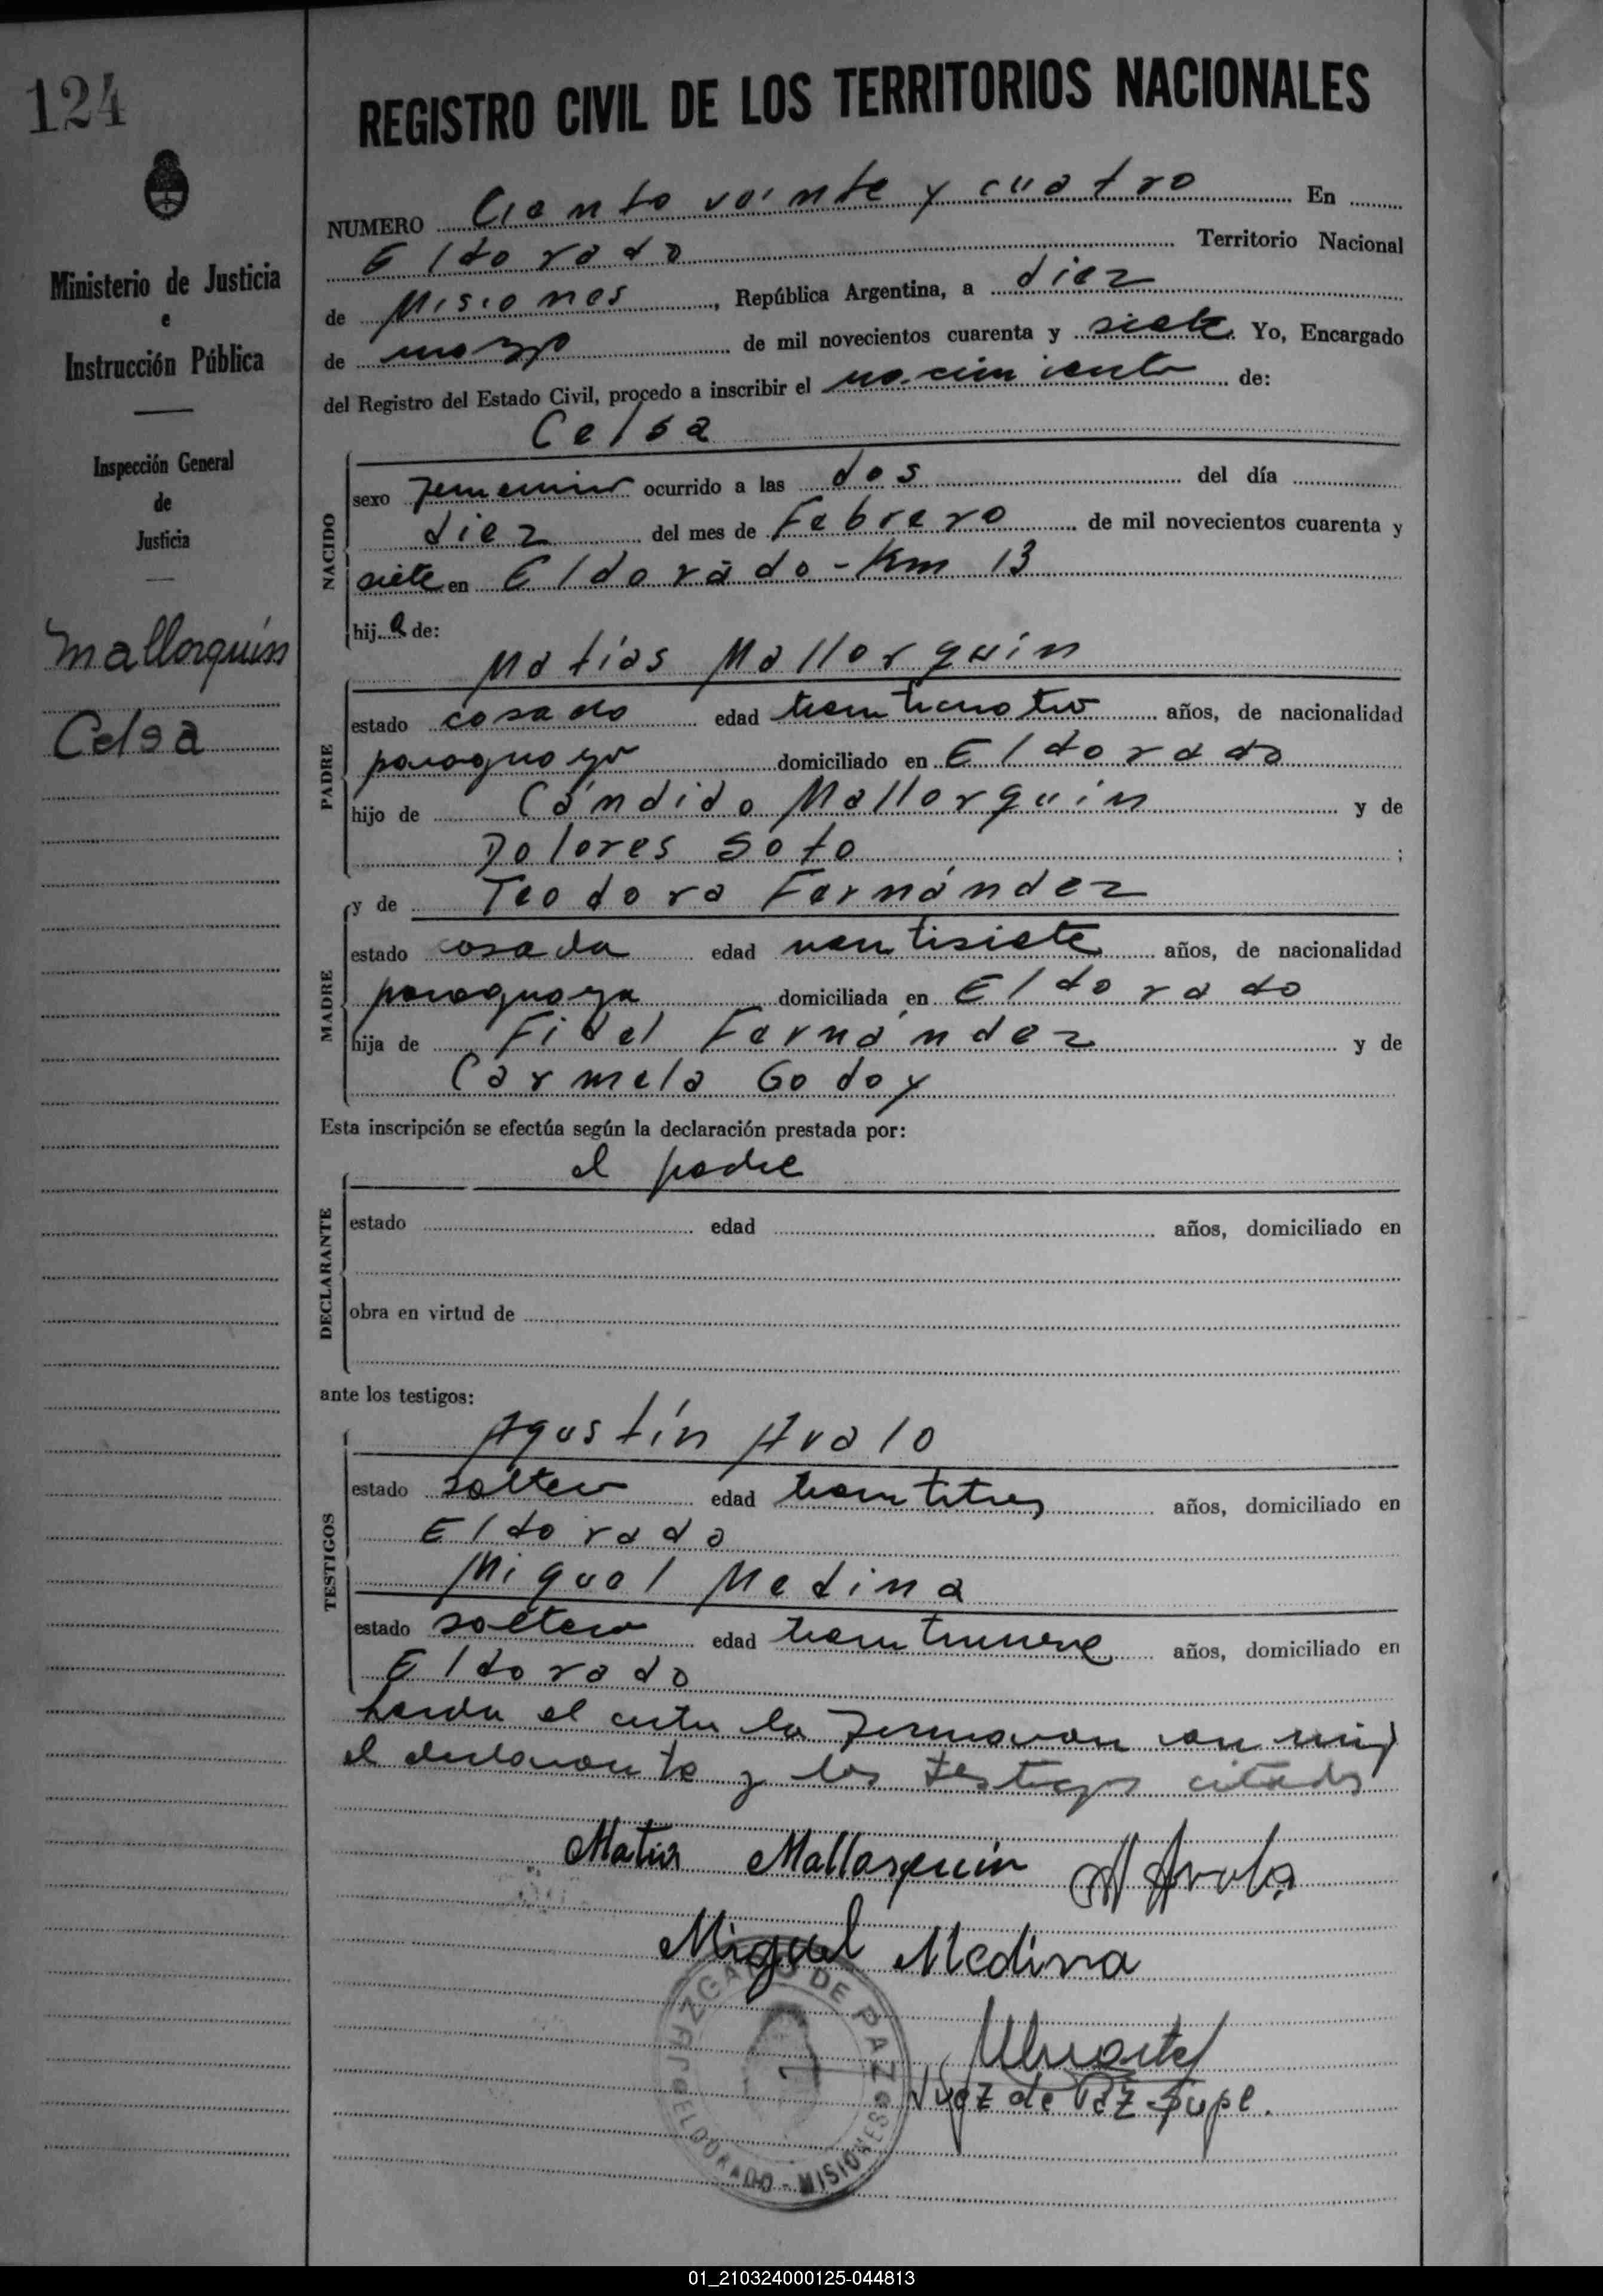 124
REGISTRO CIVIL DE LOS TERRITORIOS NACIONALES
NUMERO Ciento veinte y cuatro En
Eldorado Territorio Nacional
de Misiones, República Argentina, a diez
de marzo de mil novecientos cuarenta y siete. Yo, Encargado
del Registro del Estado Civil, procedo a inscribir el nacimiento de:
Celsa
NACIDO
sexo femenino ocurrido a las dos del día
diez del mes de Febrero de mil novecientos cuarenta y
siete en Eldorado - Km 13
hija de:
Matías Mallorquín
PADRE
estado casado edad treinticuatro años, de nacionalidad
paraguayo domiciliado en Eldorado
hijo de Cándido Mallorquín y de
Dolores Soto ;
y de Teodora Fernández
MADRE
estado casada edad ventisiete años, de nacionalidad
paraguaya domiciliada en Eldorado
hija de Fidel Fernández y de
Carmela Godoy
Esta inscripción se efectúa según la declaración prestada por:
el padre
DECLARANTE
estado edad años, domiciliado en
obra en virtud de
ante los testigos:
Agustín Avalo
TESTIGOS
estado soltero edad treintitres años, domiciliado en
Eldorado
Miguel Medina
estado soltero edad treintinueve años, domiciliado en
Eldorado
Leida el acta la firmaron con migo
el declarante y los testigos citados
Matias Mallorquin A Avalo
Miguel Medina
Juez de Paz Supl.
JUZGADO DE PAZ
ELDORADO - MISIONES
Ministerio de Justicia
e
Instrucción Pública
Inspección General
de
Justicia
Mallorquin
Celsa
01_210324000125-044813